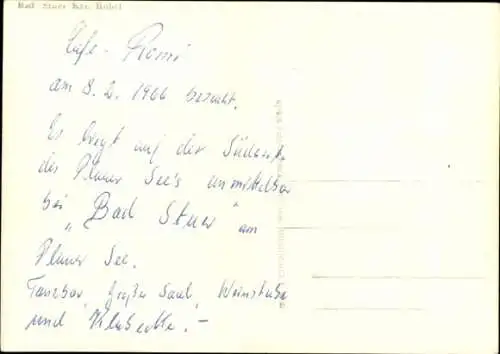 Bad Stuer Krs. Röbel
Café - Romi
am 8. 2. 1966 besucht.
Es liegt auf der Südseite
des Plauer See's unmittelbar
bei "Bad Stuer" am
Plauer See.
Tanzbar, großer Saal, Weinstube
und Klubecke. -